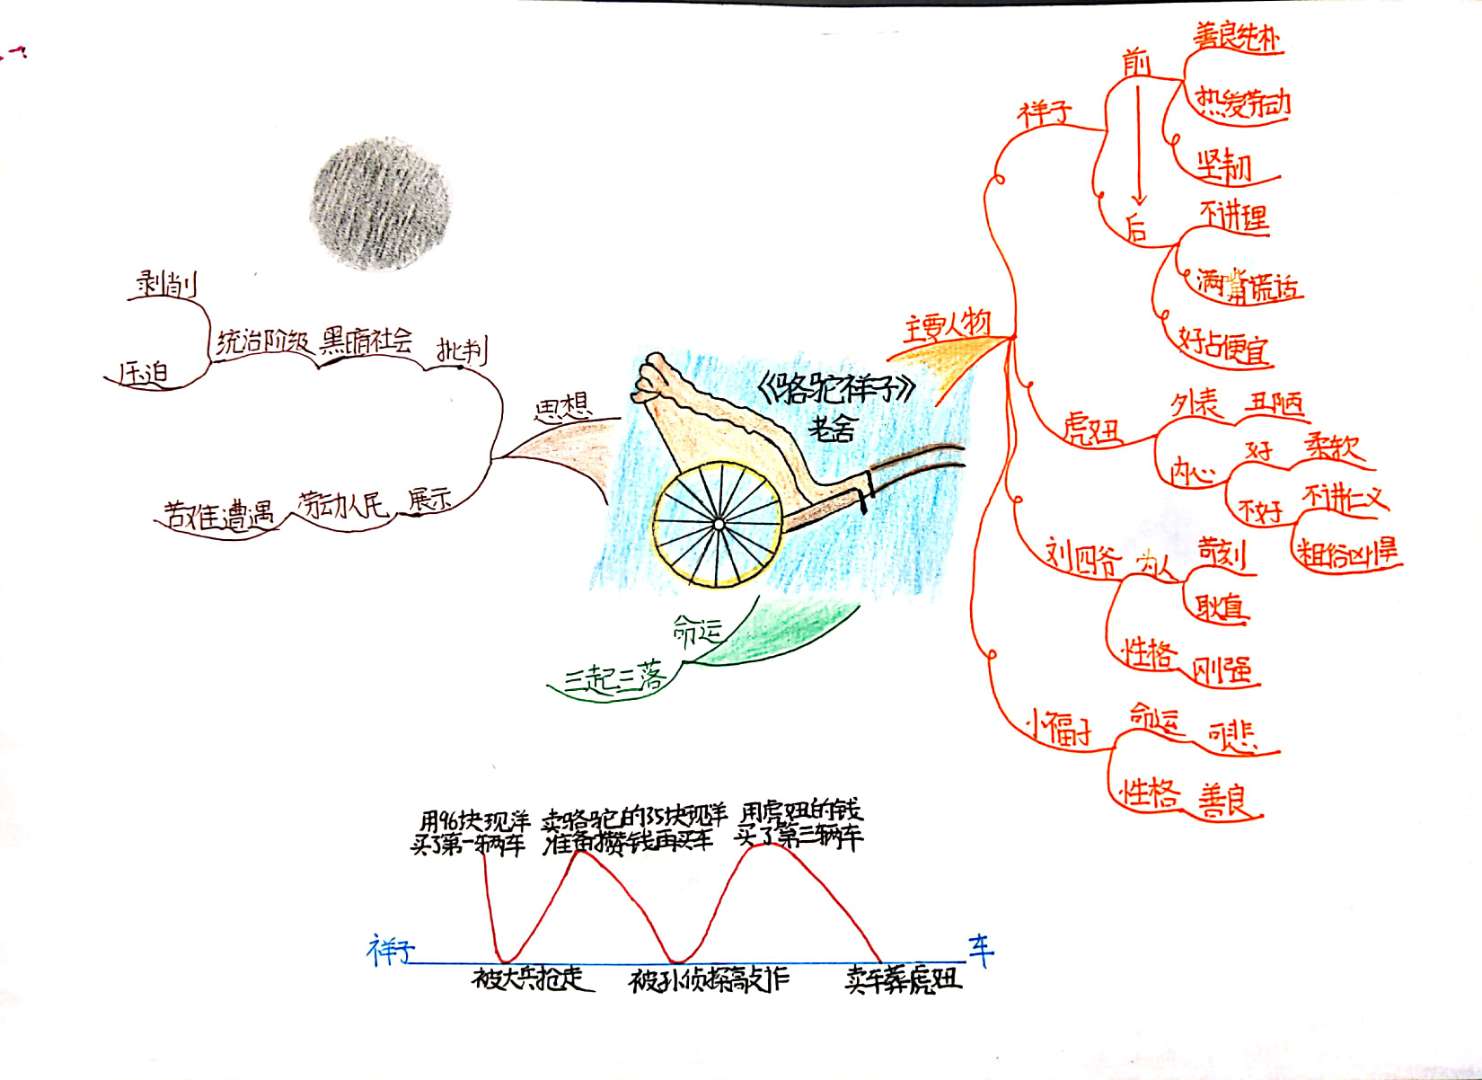 《骆驼祥子》
老舍
主要人物
祥子
前
善良纯朴
热爱劳动
坚韧
后
不讲理
满嘴谎话
好占便宜
虎妞
外表
丑陋
内心
好
柔软
不好
不讲仁义
粗俗凶悍
刘四爷
为人
苛刻
耿直
性格
刚强
小福子
命运
可悲
性格
善良
命运
三起三落
思想
批判
黑暗社会
统治阶级
剥削
压迫
展示
劳动人民
苦难遭遇
用96块现洋
买了第一辆车
卖骆驼的35块现洋
准备攒钱再买车
用虎妞的钱
买了第三辆车
祥子
车
被大兵抢走
被孙侦探敲诈
卖车葬虎妞